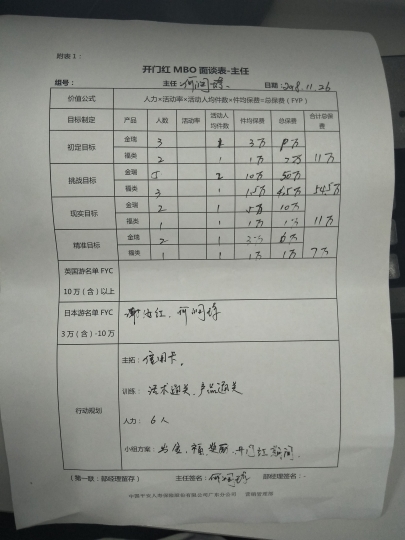 附表1：
开门红 MBO 面谈表-主任
组号： 主任： 日期：2018.11.26
价值公式 人力×活动率×活动人均件数×件均保费=总保费（FYP）
目标制定 产品 人数 活动率 活动人均件数 件均保费 总保费 合计总保费
初定目标 金瑞 3 3万
福类 2 1 1万 2万 11万
挑战目标 金瑞 5 2 10万 50万
福类 3 1 1.5万 4.5万 54.5万
现实目标 金瑞 2 1 5万 10万
福类 1 1 1万 11万
精准目标 金瑞 2 1 6万
福类 1 1 1万 1万 7万
英国游名单 FYC
10 万（含）以上
日本游名单 FYC
3 万（含）-10万
行动规划
主拓：信用卡.
训练：话术通关、产品通关
人力：6人
小组方案： 开门红
（第一联：部经理留存） 主任签名： 部经理签名：